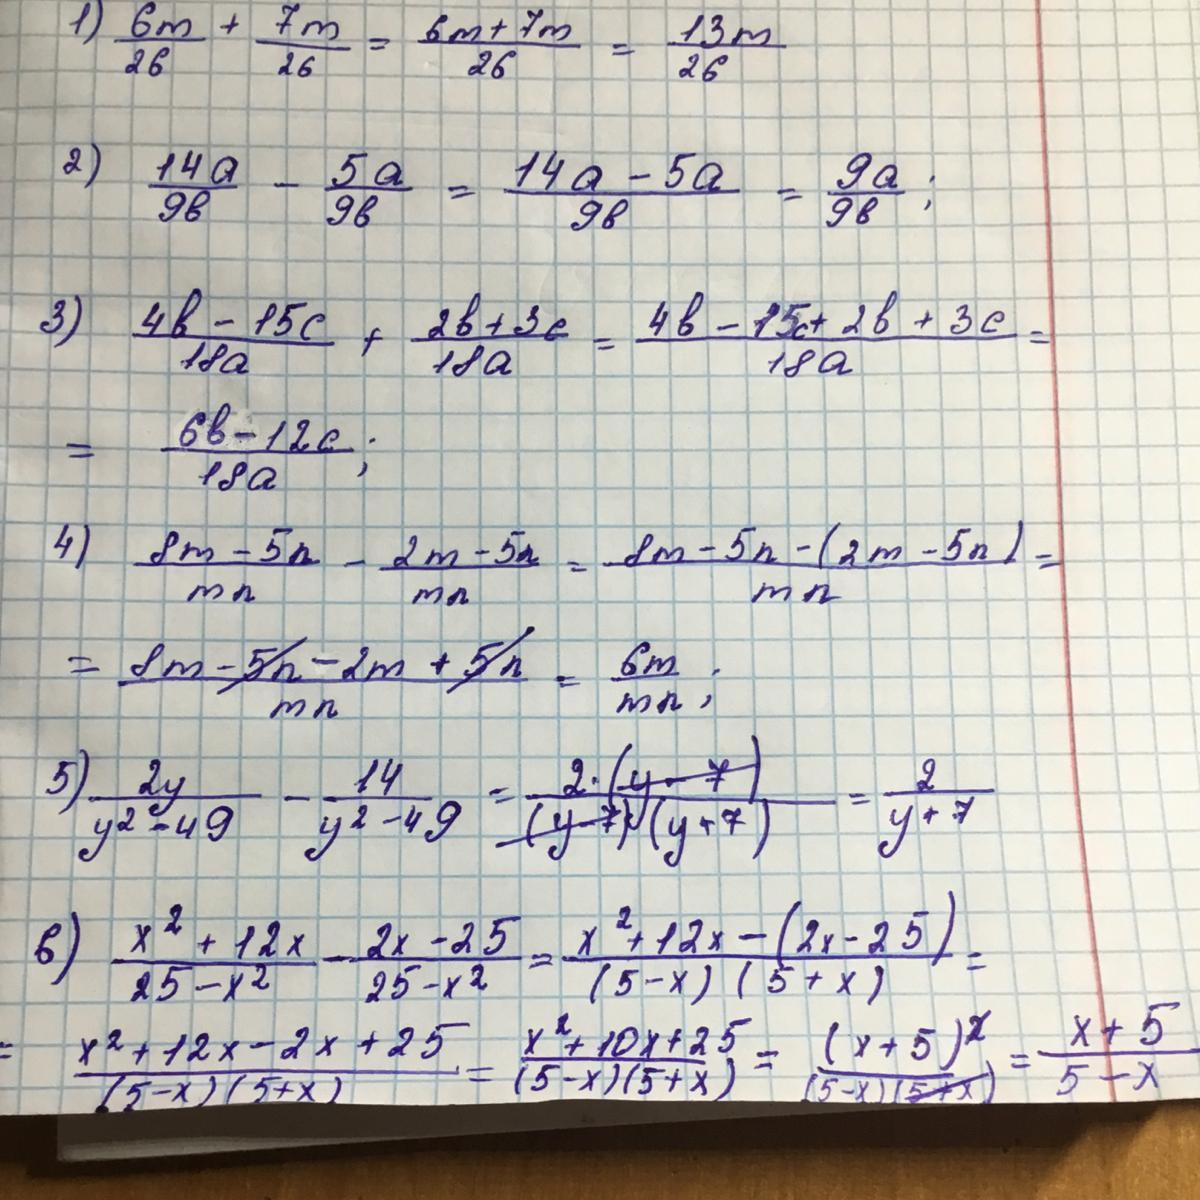 1) 6m/26 + 7m/26 = 6m+7m/26 = 13m/26
2) 14a/9b - 5a/9b = 14a - 5a/9b = 9a/9b ;
3) 4b - 15c/18a + 2b+3c/18a = 4b - 15c + 2b + 3c/18a =
= 6b - 12c/18a ;
4) 8m - 5n/mn - 2m - 5n/mn = 8m - 5n - (2m - 5n)/mn =
= 8m - 5n - 2m + 5n/mn = 6m/mn ;
5) 2y/y² - 49 - 14/y² - 49 = 2·(y - 7)/(y-7)(y+7) = 2/y+7
6) x² + 12x/25 - x² - 2x - 25/25 - x² = x² + 12x - (2x - 25)/(5-x)(5+x) =
= x² + 12x - 2x + 25/(5-x)(5+x) = x² + 10x + 25/(5-x)(5+x) = (x+5)²/(5-x)(5+x) = x+5/5-x